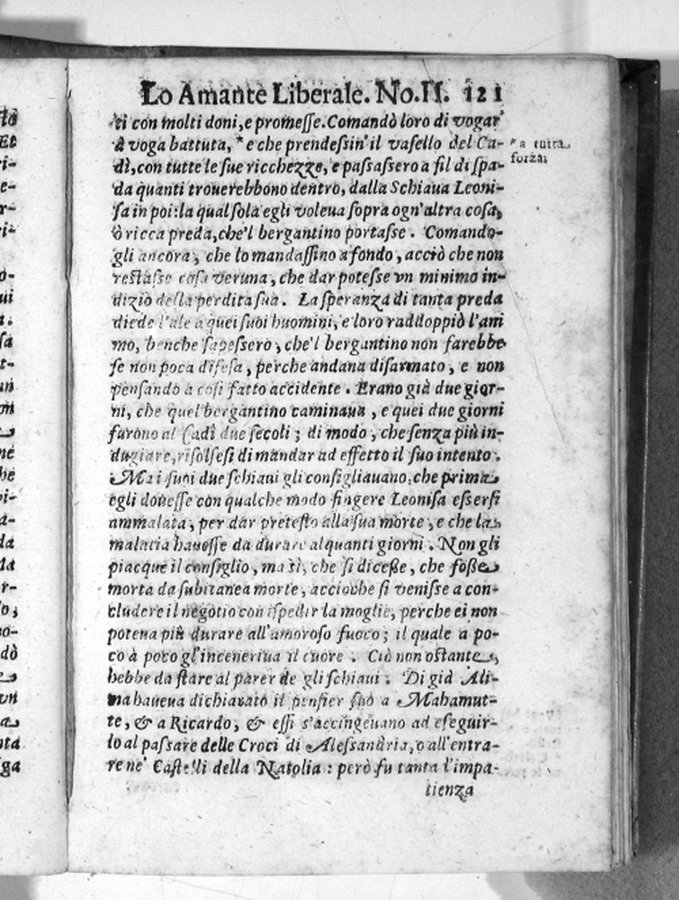 Lo Amante Liberale. No. II. 121
ti con molti doni, e promesse. Comandò loro di vogar
à voga battuta, * e che prendessin' il vasello del Ca-
dì, con tutte le sue ricchezze, e passassero a fil di spa-
da quanti trouerebbono dentro, dalla Schiaua Leoni-
sa in poi: la qual sola egli voleua sopra ogn'altra cosa,
ò ricca preda, che'l bergantino portasse. Comando-
gli ancora, che lo mandassino a fondo, acciò che non
restasse cosa veruna, che dar potesse vn minimo in-
dizio della perdita sua. La speranza di tanta preda
diede l'ale a quei suoi huomini, e loro raddoppiò l'ani
mo, benche sapessero, che'l bergantino non farebbe
se non poca difesa, perche andaua disarmato, e non
pensando a così fatto accidente. Erano già due gior-
ni, che quel bergantino caminaua, e quei due giorni
furono al Cadì due secoli; di modo, che senza più in-
dugiare, risolsesi di mandar ad effetto il suo intento.
Ma i suoi due schiaui gli consigliauano, che prima
egli douesse con qualche modo fingere Leonisa essersi
ammalata, per dar pretesto alla sua morte, e che la
malatia hauesse da durare alquanti giorni. Non gli
piacque il consiglio, ma sì, che si dicesse, che fosse
morta da subitanea morte, accioche si venisse a con-
cludere il negotio con ispedir la moglie, perche ei non
poteua più durare all'amoroso fuoco; il quale a po-
co à poco gl'inceneriua il cuore. Ciò non ostante,
hebbe da stare al parer de gli schiaui. Di già Ali-
ma haueua dichiarato il pensier suo a Mahamut-
te, & a Ricardo, & essi s'accingeuano ad eseguir-
lo al passare delle Croci di Alessandria, o all'entra-
re ne' Castelli della Natolia: però fu tanta l'impa-
tienza
* a tutta
forza;